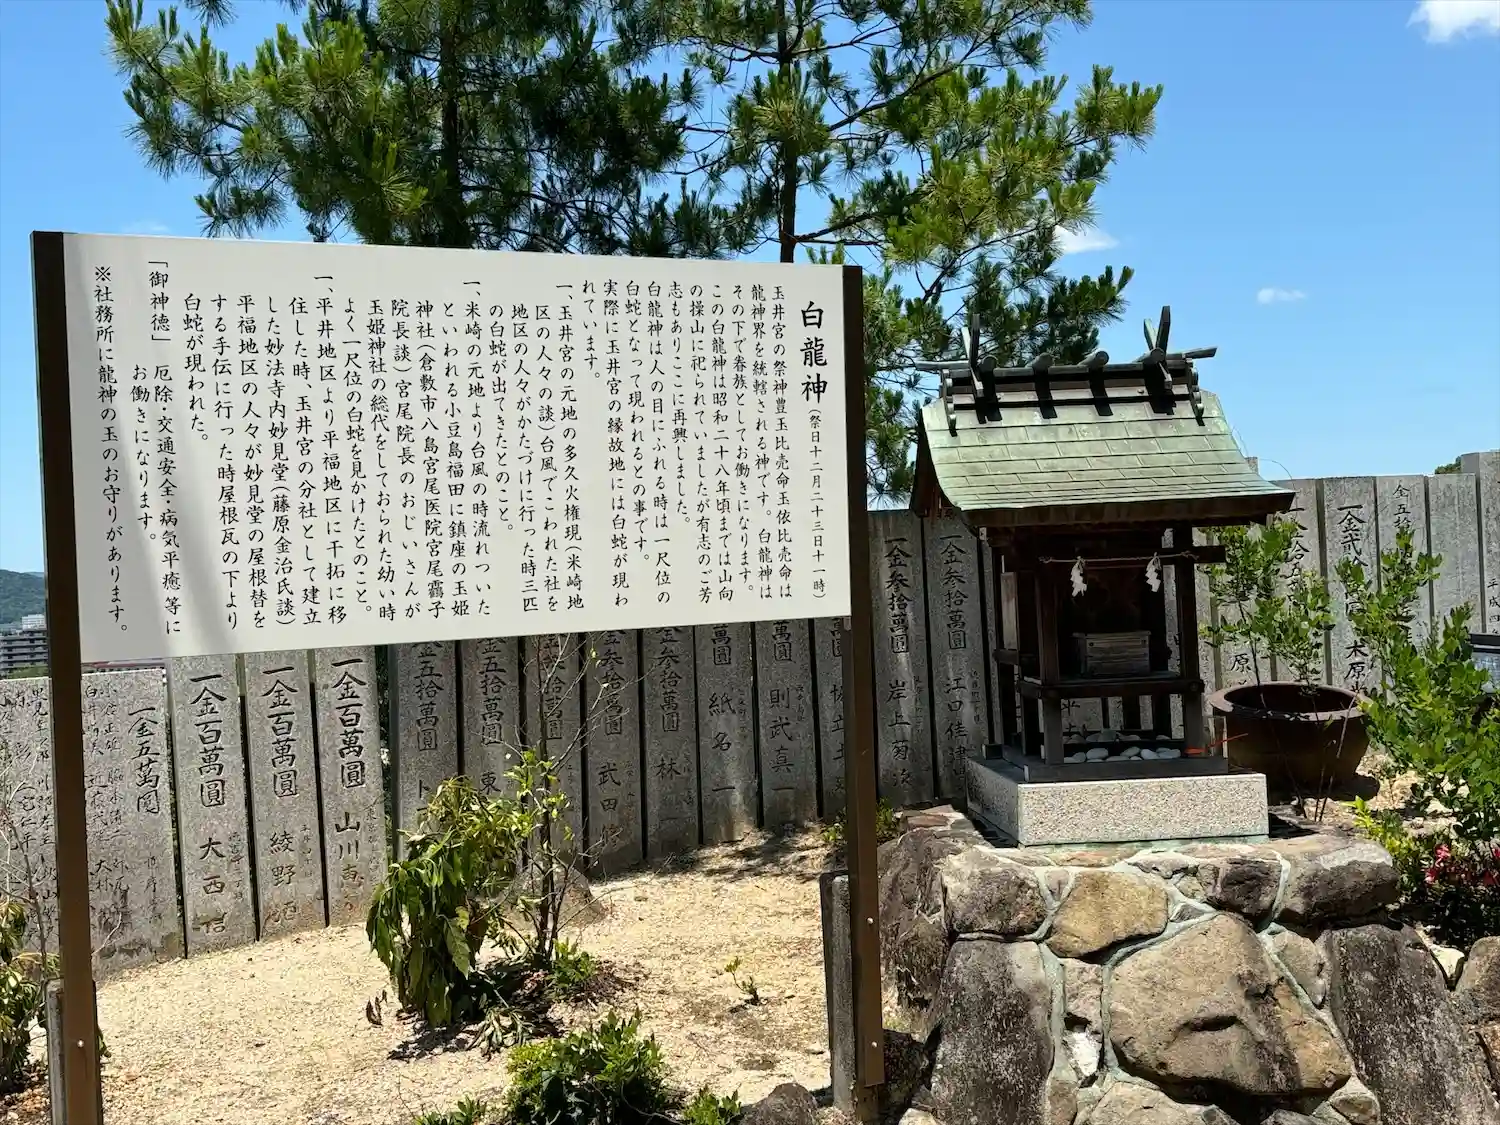 白龍神(祭日十二月二十三日十一時)
玉井宮の祭神豊玉比売命玉依比売命は
龍神界を統轄される神です。白龍神は
その下で眷族としてお働きになります。
この白龍神は昭和二十八年頃までは山向
の操山に祀られていましたが有志のご芳
志もありここに再興しました。
白龍神は人の目にふれる時は一尺位の
白蛇となって現われるとの事です。
実際に玉井宮の縁故地には白蛇が現わ
れています。
一、玉井宮の元地の多久火権現(米崎地
区の人々の談)台風でこわれた社を
地区の人々がかたづけに行った時三匹
の白蛇が出てきたとのこと。
一、米崎の元地より台風の時流れついた
といわれる小豆島福田に鎮座の玉姫
神社(倉敷市八島宮尾医院宮尾靍子
院長談)宮尾院長のおじいさんが
玉姫神社の総代をしておられた幼い時
よく一尺位の白蛇を見かけたとのこと。
一、平井地区より平福地区に干拓に移
住した時、玉井宮の分社として建立
した妙法寺内妙見堂(藤原金治氏談)
平福地区の人々が妙見堂の屋根替を
する手伝に行った時屋根瓦の下より
白蛇が現われた。
「御神徳」 厄除・交通安全・病気平癒等に
お働きになります。
※社務所に龍神の玉のお守りがあります。
金五拾
一金弐
木原
原
一金参拾萬圓 江口佳津
一金参拾萬圓 岸上菊次
萬圓
萬圓 則武真一
萬圓 紙名一
金参拾萬圓 林
金参拾萬圓 武田修
拾萬圓
金五拾萬圓 東
金五拾萬圓
一金百萬圓 山川
一金百萬圓 綾野
一金百萬圓 大西信
一金五萬圓